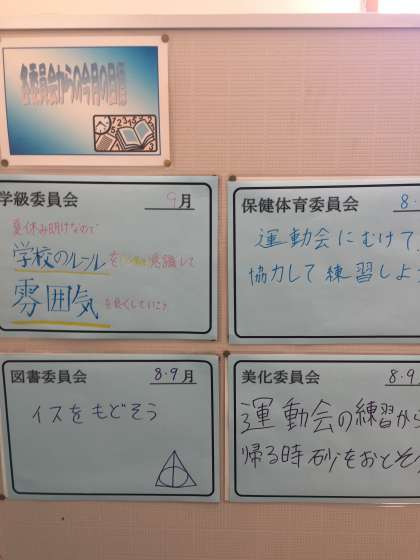 各委員会からの今月の目標
学級委員会 9月
夏休み明けなので
学校のルールを意識して
雰囲気を良くしていこう
保健体育委員会 8.
運動会にむけて
協力して練習しよ
図書委員会 8・9月
イスをもどそう
美化委員会 8.9
運動会の練習から
帰る時砂をおとそ